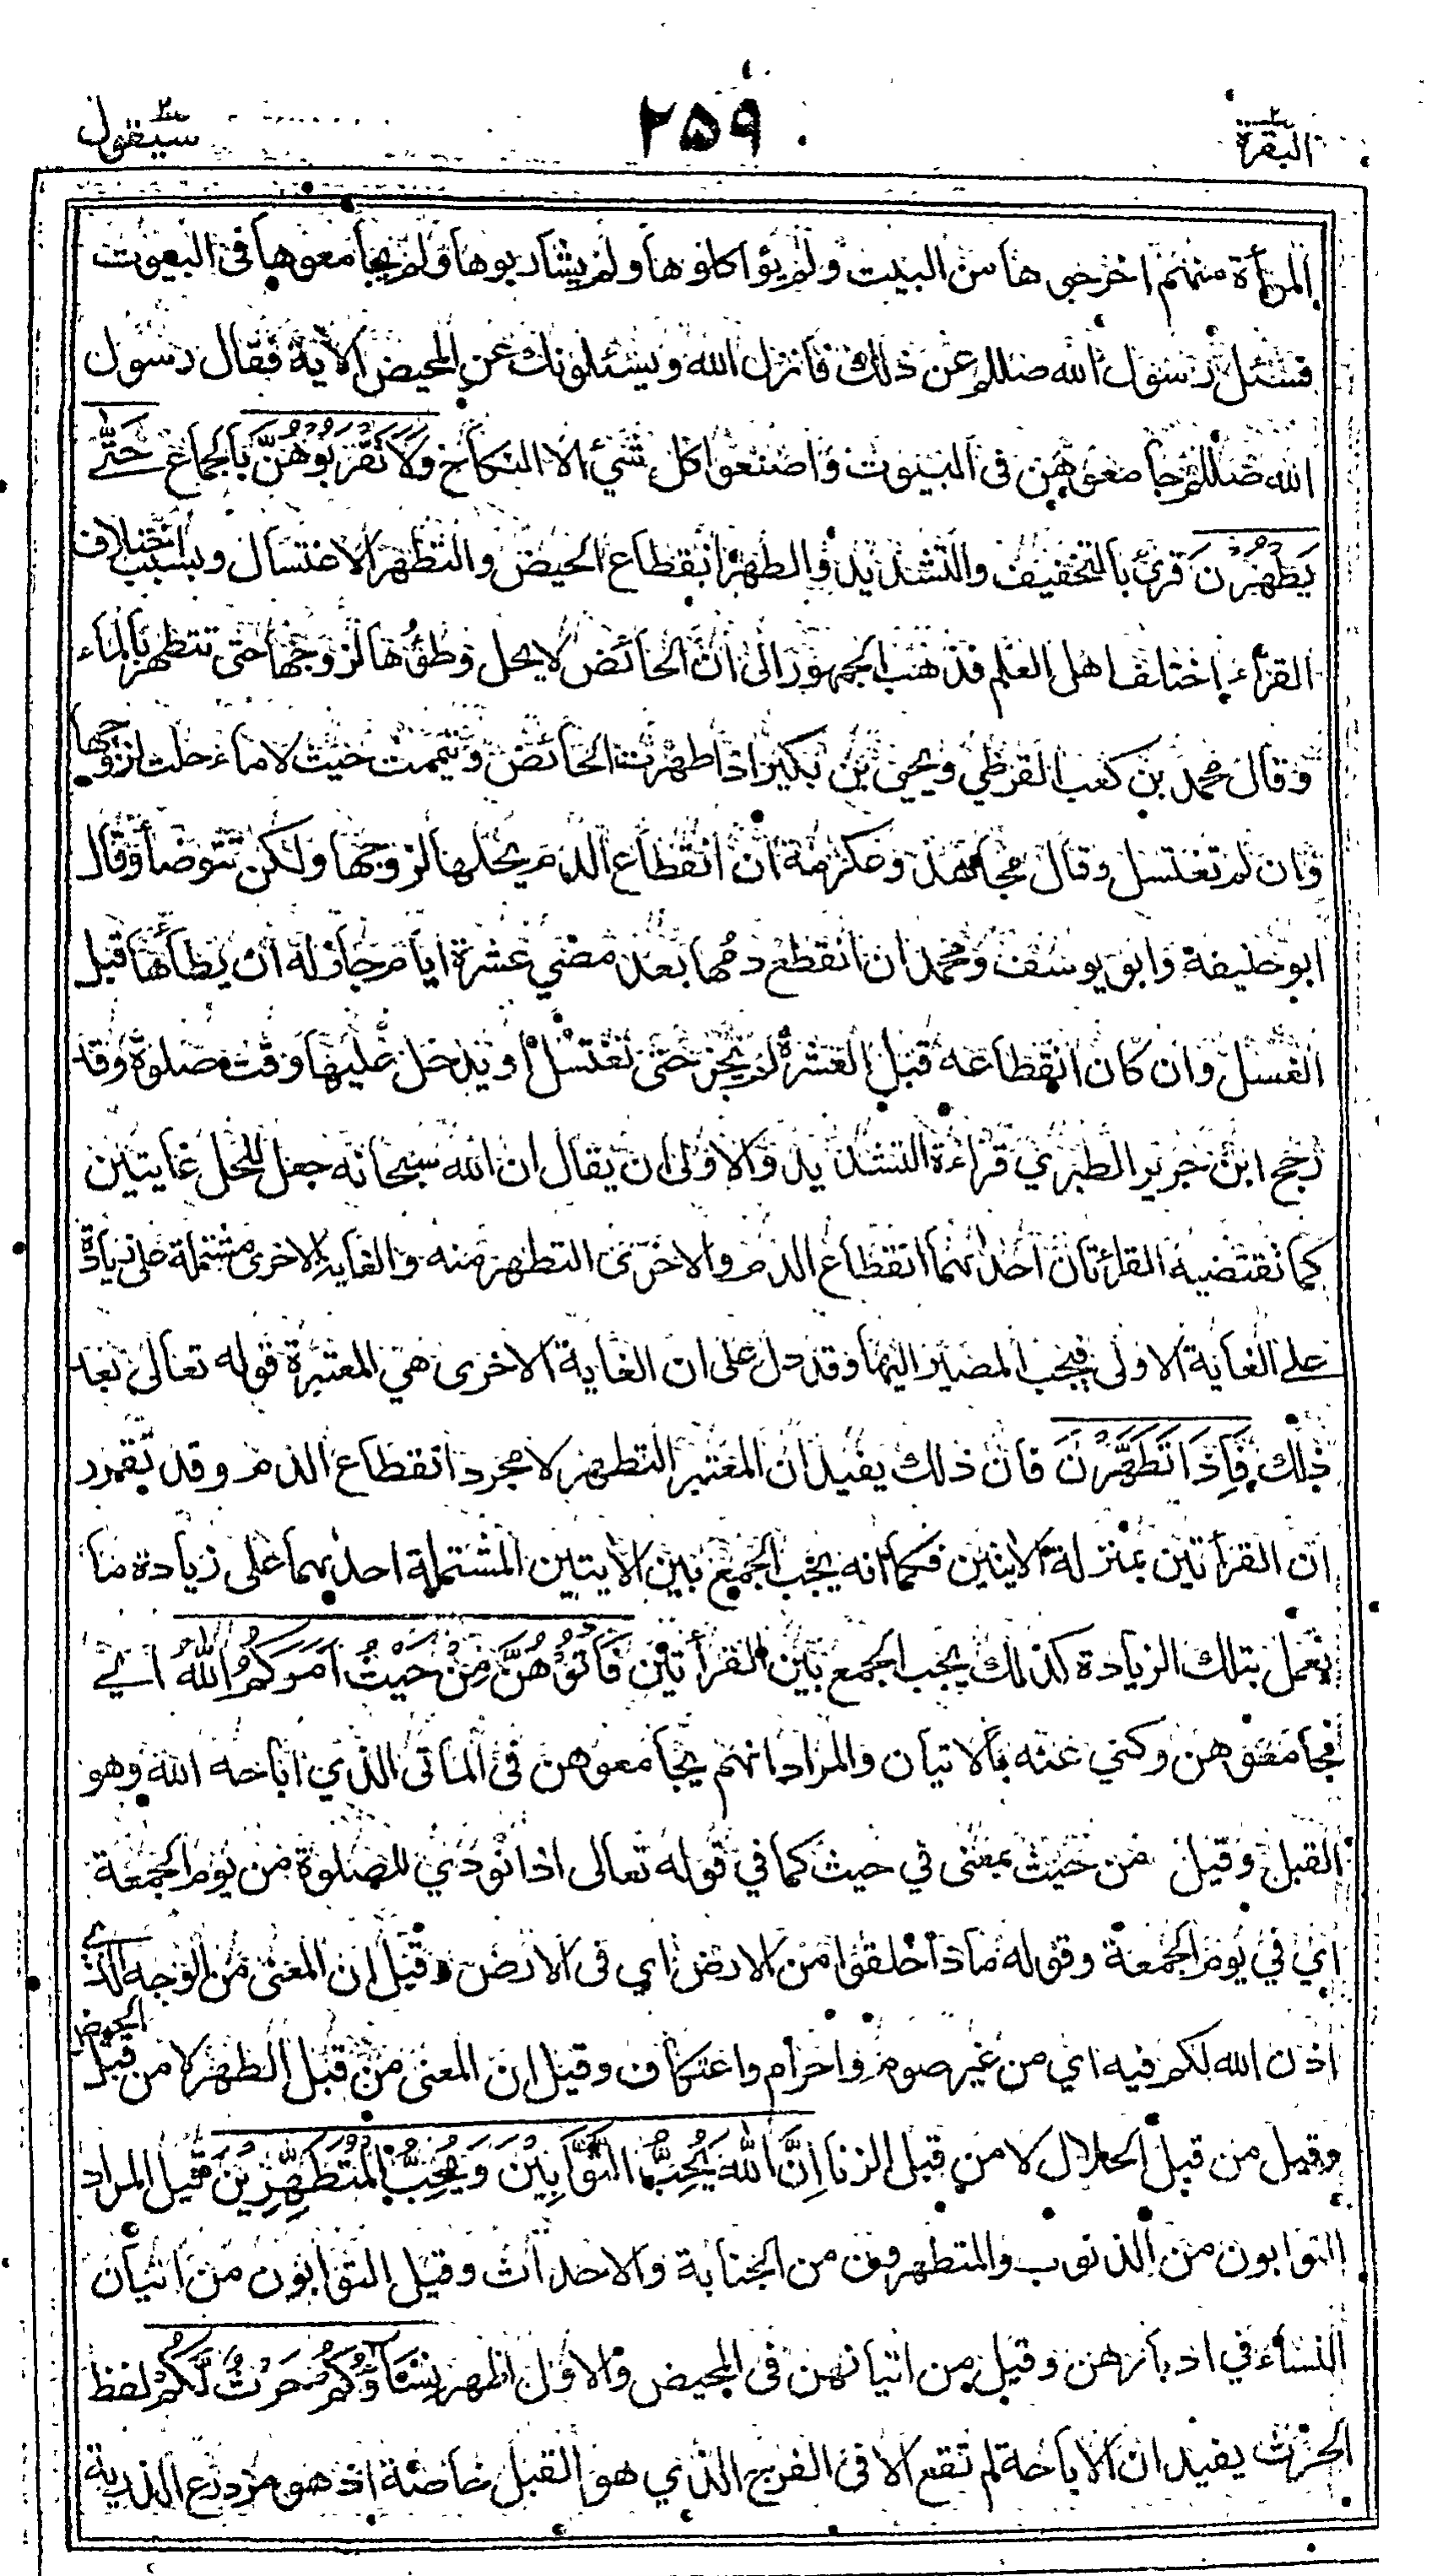 البقرة ٢٥٩ سيقول
المرأة منهم اخرجوها من البيت ولم يؤاكلوها ولم يشاربوها ولم يجامعوها فى البيوت
فسئل رسول الله صللم عن ذلك فانزل الله ويسئلونك عن المحيض الاية فقال رسول
الله صللم جامعوهن فى البيوت واصنعوا كل شيء الا النكاح وَلَا تَقْرَبُوْهُنَّ بالجماع حَتّٰى
يَطْهُرْنَ قرئ بالتخفيف والتشديد والطهر انقطاع الحيض والتطهر الاغتسال وبسبب اختلاف
القراء اختلف اهل العلم فذهب الجمهور الى ان الحائض لا يحل وطؤها لزوجها حتى تتطهر بالماء
وقال محمد بن كعب القرظي ويحيى بن بكير اذا طهرت الحائض وتيممت حيث لا ماء حلت لزوجها
وان لم تغتسل وقال مجاهد وعكرمة ان انقطاع الدم يحلها لزوجها ولكن تتوضأ وقال
ابو حنيفة وابو يوسف ومحمد ان انقطع دمها بعد مضي عشرة ايام جاز له ان يطأها قبل
الغسل وان كان انقطاعه قبل العشرة لم يجز حتى تغتسل او يدخل عليها وقت صلوة وقد
رجح ابن جرير الطبري قراءة التشديد والاولى ان يقال ان الله سبحانه جعل للحل غايتين
كما تقتضيه القراتان احدٰهما انقطاع الدم والاخرى التطهر منه والغاية الاخرى مشتملة على زيادة
على الغاية الاولى فيجب المصير اليها وقد دل على ان الغاية الاخرى هي المعتبرة قوله تعالى بعد
ذلك فَاِذَا تَطَهَّرْنَ فان ذلك يفيد ان المعتبر التطهر لا مجرد انقطاع الدم وقد تقرر
ان القرأتين بمنزلة الايتين فكما انه يجب الجمع بين الايتين المشتملة احدٰهما على زيادة ما
يعمل بتلك الزيادة كذلك يجب الجمع بين القرأتين فَأْتُوْهُنَّ مِنْ حَيْثُ اَمَرَكُمُ اللّٰهُ اي
فجامعوهن وكني عنه بالاتيان والمراد انهم يجامعوهن فى المأتى الذي اباحه الله وهو
القبل وقيل من حيث بمعنى في حيث كما في قوله تعالى اذا نودي للصلوة من يوم الجمعة
اي في يوم الجمعة وقوله ماذا خلقوا من الارض اي فى الارض وقيل ان المعنى من الوجه الذي
اذن الله لكم فيه اي من غير صوم واحرام واعتكاف وقيل ان المعنى من قبل الطهر لا من قبل الحيض
وقيل من قبل الحلال لا من قبل الزنا اِنَّ اللّٰهَ يُحِبُّ التَّوَّابِيْنَ وَيُحِبُّ الْمُتَطَهِّرِيْنَ قيل المراد
التوابون من الذنوب والمتطهرون من الجنابة والاحداث وقيل التوابون من اتيان
النساء في ادبارهن وقيل من اتيانهن فى الحيض والاول اظهر نِسَآؤُكُمْ حَرْثٌ لَّكُمْ لفظ
الحرث يفيد ان الاباحة لم تقع الا فى الفرج الذي هو القبل خاصة اذ هو مزدرع الذرية